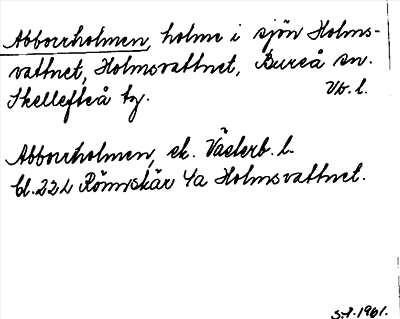 Abborrholmen, holme i sjön Holms-
vattnet, Holmsvattnet, Bureå sn.
Skellefteå tg. Vb. l.
Abborrholmen, ek. Västerb. l.
bl. 22 L Rönnskär 4a Holmsvattnet.
S.A. 1961.